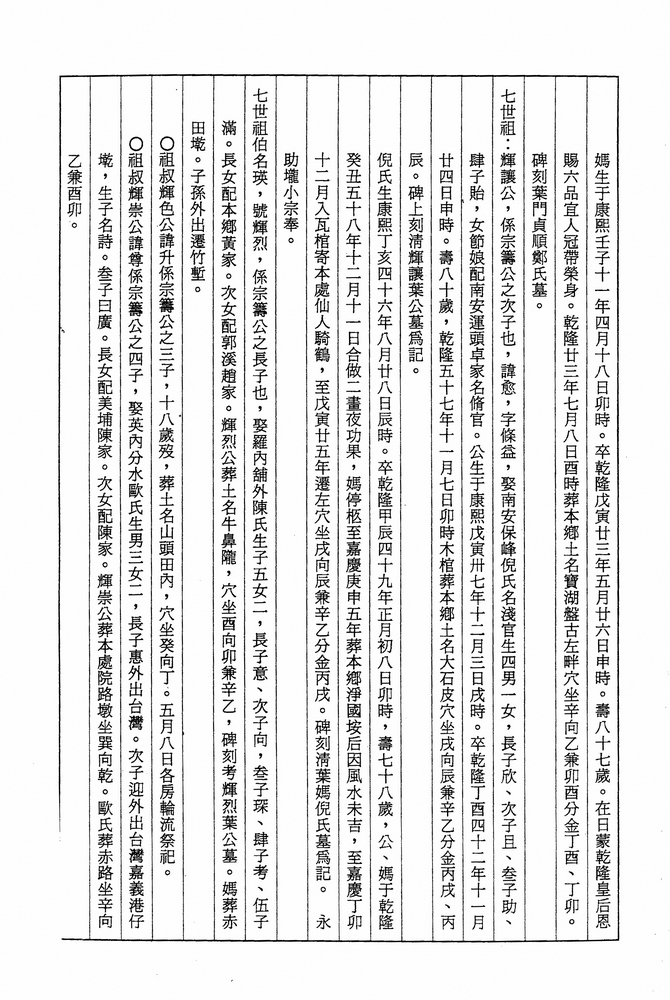 媽生于康熙壬子十一年四月十八日卯時。卒乾隆戊寅廿三年五月廿六日申時。壽八十七歲。在日蒙乾隆皇后恩
賜六品宜人冠帶榮身。乾隆廿三年七月八日酉時葬本鄉土名寶湖盤古左畔穴坐辛向乙兼卯酉分金丁酉、丁卯。
碑刻葉門貞順鄭氏墓。
七世祖：輝讓公，係宗籌公之次子也，諱愈，字條益，娶南安保峰倪氏名淺官生四男一女，長子欣、次子且、叁子助、
肆子貽，女節娘配南安運頭卓家名脩官。公生于康熙戊寅卅七年十二月三日戌時。卒乾隆丁酉四十二年十一月
廿四日申時。壽八十歲，乾隆五十七年十一月七日卯時木棺葬本鄉土名大石皮穴坐戌向辰兼辛乙分金丙戌、丙
辰。碑上刻清輝讓葉公墓爲記。
倪氏生康熙丁亥四十六年八月廿八日辰時。卒乾隆甲辰四十九年正月初八日卯時，壽七十八歲，公、媽于乾隆
癸丑五十八年十二月十一日合做二晝夜功果，媽停柩至嘉慶庚申五年葬本鄉淨國垵后因風水未吉，至嘉慶丁卯
十二月入瓦棺寄本處仙人騎鶴，至戊寅廿五年遷左穴坐戌向辰兼辛乙分金丙戌。碑刻清葉媽倪氏墓爲記。　永
助壠小宗奉。
七世祖伯名瑛，號輝烈，係宗籌公之長子也，娶羅內舖外陳氏生子五女二，長子意、次子向，叁子琛、肆子考、伍子
滿。長女配本鄉黃家。次女配郭溪趙家。輝烈公葬土名牛鼻隴，穴坐酉向卯兼辛乙，碑刻考輝烈葉公墓。媽葬赤
田墘。子孫外出遷竹塹。
〇祖叔輝色公諱升係宗籌公之三子，十八歲歿，葬土名山頭田內，穴坐癸向丁。五月八日各房輪流祭祀。
〇祖叔輝崇公諱尊係宗籌公之四子，娶英內分水歐氏生男三女二，長子惠外出台灣。次子迎外出台灣嘉義港仔
墘，生子名詩。叁子曰廣。長女配美埔陳家。次女配陳家。輝崇公葬本處院路墩坐巽向乾。歐氏葬赤路坐辛向
乙兼酉卯。